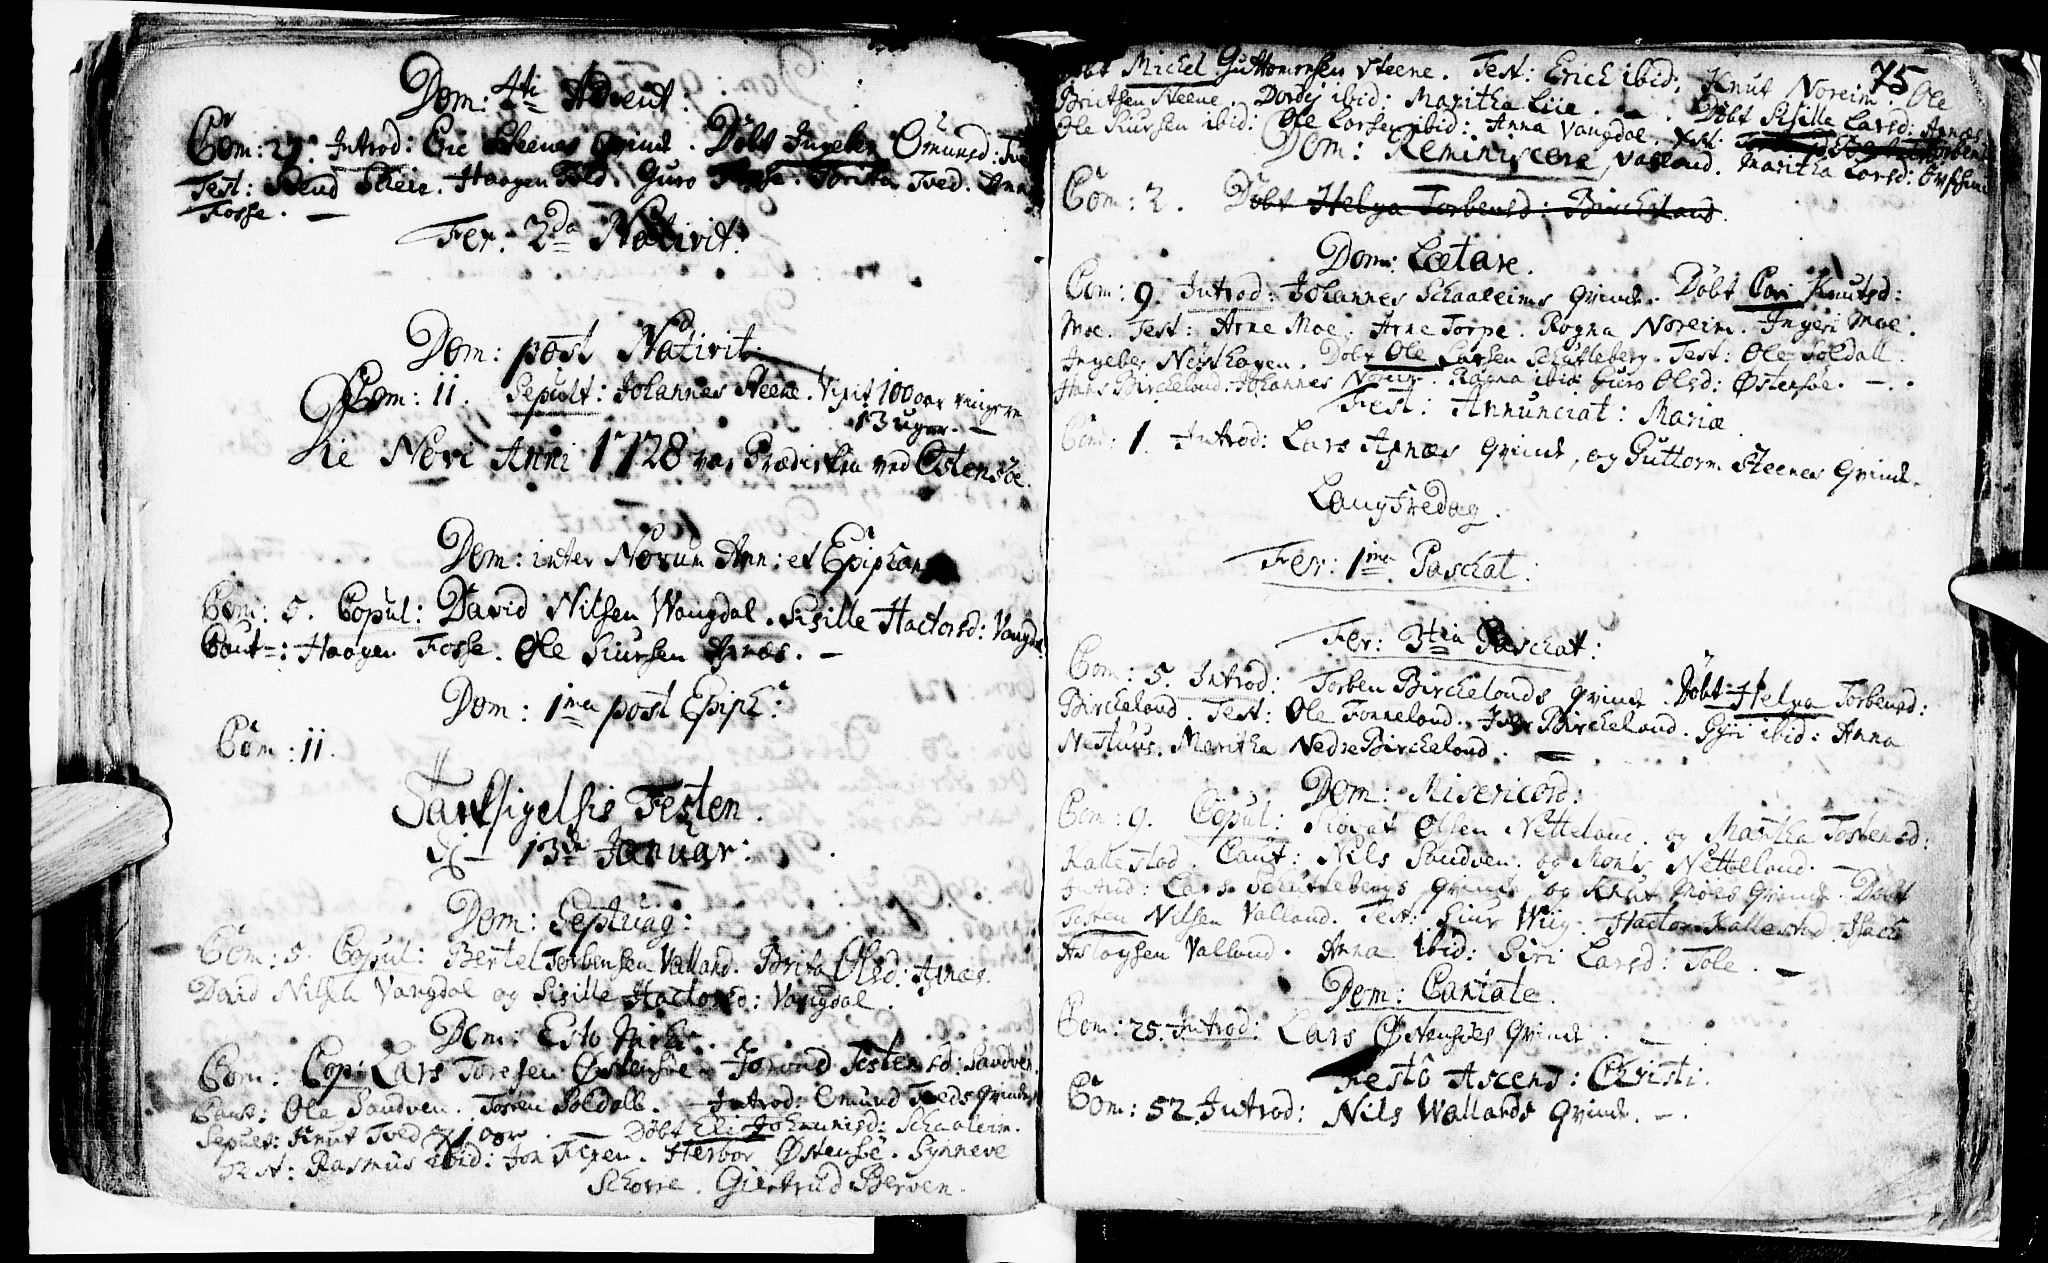 Dom: 4ti Advent:
Com: 27. Introd: Eric Steenes Qvinde. Døbt Ingeber Omunsd:
Test: Haagen Tved. Guro Torita Tved. Anna
Fosse. —
Fer: 2da Nativit:
Dom: post Nativit:
Com: 11. Sepult: Johannes Steene. Vixit 100 aar ringere
13 uger. —
Die Novi Anni 1728 var Prædiken ved Ostensøe.
Dom: inter Novum Ann: et Epiphan
Com: 5. Copul: David Nilsen Wangdal. Sisille Hactorsd: Vangdal
Caut: Haagen Fosse. Ole Siursen Axnæs. —
Dom: 1ma post Epiph:
Com: 11.
Tacksigelsis Festen.
D: 13de Januar:
Dom: Septuag:
Com: 5. Copul: Bertel Torbensen Valland. Brita Olsd: Axnæs.
David Nilsen Vangdal og Sisille Hactorsd: Vangdal.
Dom: Esto Mihi.
Com: Cop: Lars Toresen Østensøe. Tostensd: Sandven.
Caut: Ola Sandven. Tosten Soldall. — Introd: Omund Tveds Qvinde,
Sepult: Knut Tved 71 aar. — Døbt Eli Johannisd: Schaaleim.
Test: Rasmus ibid: Jon Herbor Østensøe. Synneve
Schorre. Giertrud Berven.
75
Døbt Michel Guttormsen Steene. Test: Erich ibid: Knut Noreim. Ole
Britsen Steene Dordej ibid: Maritha Liie. — . Døbt Sisille Larsd: Axnæs
Ole Siursen ibid: Ole Larsen ibid: Anna Vangdal. Test:
Dom: Reminiscere, Valland. Maritha Larsd:
Com: 2. Døbt Helga Torbensd: Birckeland.
Dom: Lætare.
Com: 9. Introd: Johannes Schaaleims Qvinde. Døbt Cari Knutsd:
Moe. Test: Arne Moe. Arne Torpe. Rogna Noreim. Ingeri Moe.
Ingeber Nøshagen. Døbt Ole Larsen Schutleberg. Test: Ole Soldall.
Hans Birckeland. Johannes Noreim. Ragna ibid: Guro Olsd: Østensøe. —.
Fest: Annunciat: Mariæ
Com: 1. Introd: Lars Axnæs Qvinde, og Guttorm Steenes Qvinde.
Langfredag.
Fer: 1ma Paschat:
Fer: 3tia Paschat:
Com: 5. Introd: Torben Birckelands Qvinde. Døbt Helga Torbensd:
Birckeland. Test: Ole Tonneland. Iver Birckeland. Gyri ibid: Anna
Nestuus. Maritha Nedre Birckeland. —
Dom: Misericord:
Com: 9. Copul: Siovat Olsen Netteland. og Maritha Tostensd:
Kallestad. Caut: Nils Sandven. og Mons Netteland. —
Introd: Lars Schutlebergs Qvinde og Knut Moes Qvinde. Døbt
Tosten Nilsen Valland. Test: Siur Wiig. Hactor Kallestad. Isach
Aslaysen Valland. Anna ibid: Siri Larsd: Tole. —
Dom: Cantate.
Com: 25. Introd: Lars Østensøes Qvinde. —
Festo Ascens: Christi.
Com: 52. Introd: Nils Wallands Qvinde. —.